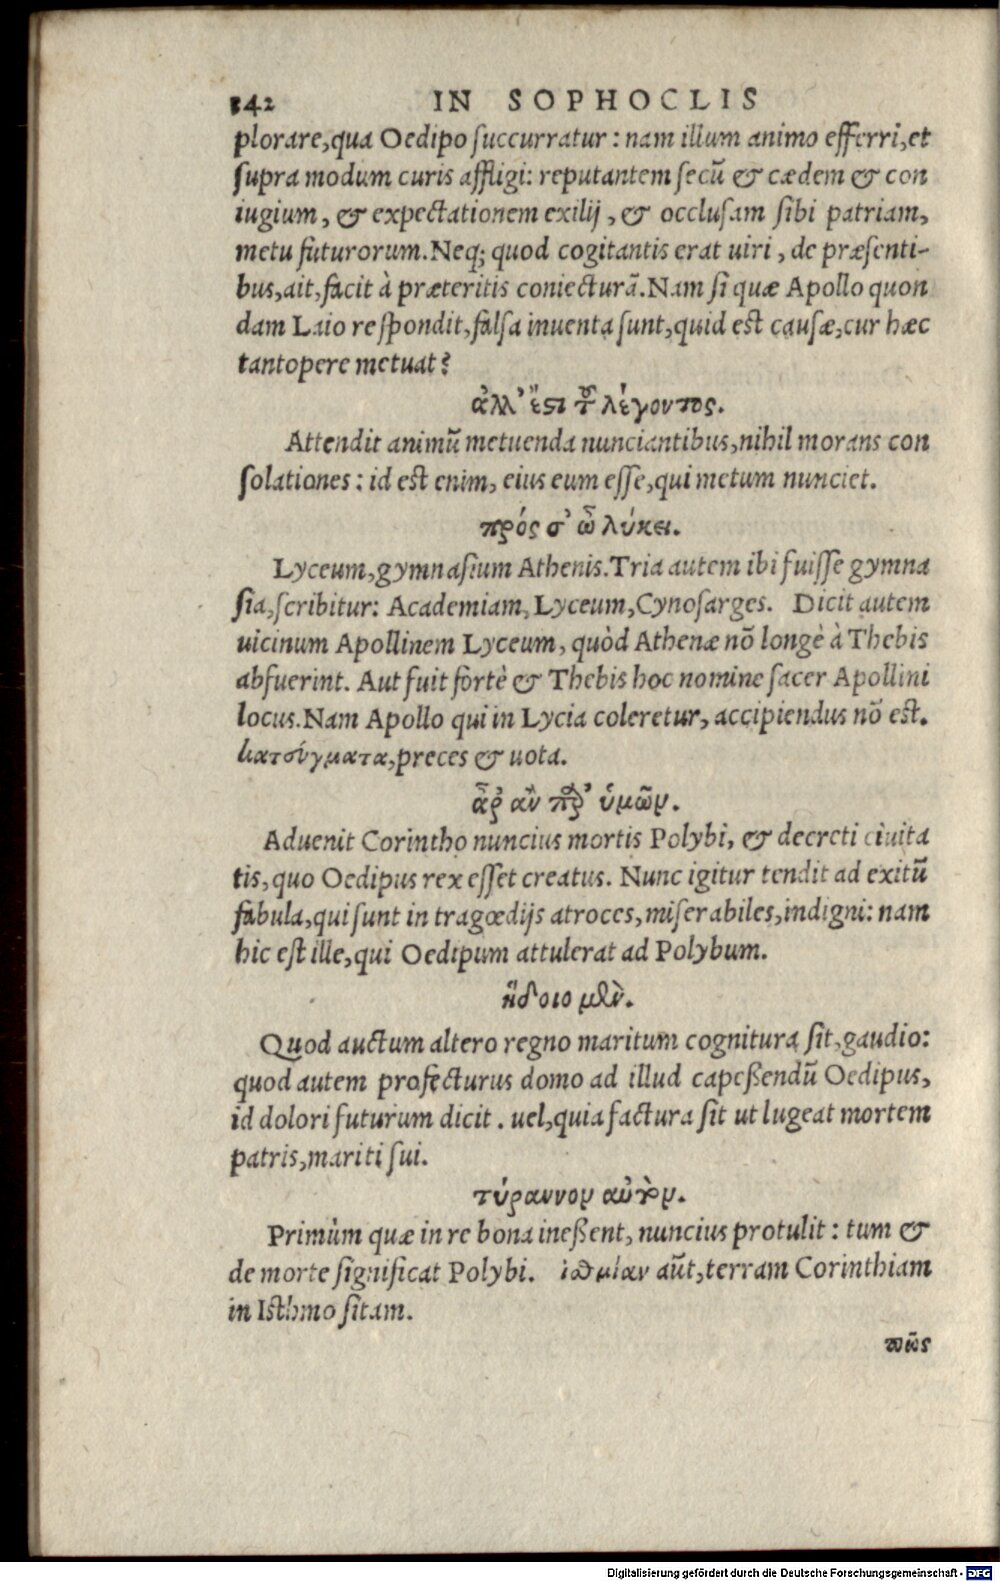 342 IN SOPHOCLIS
plorare,qua Oedipo ſuccurratur: nam illum animo efferri,et
ſupra modum curis affligi: reputantem ſecũ & cædem & con
iugium, & expectationem exilij, & occluſam ſibi patriam,
metu futurorum. Neq; quod cogitantis erat uiri, de præſenti-
bus,ait,facit à præteritis coniecturã. Nam ſi quæ Apollo quon
dam Laio reſpondit,falſa inuenta ſunt,quid eſt cauſæ,cur hæc
tantopere metuat?
ἀλλ' ἔστι τοῦ λέγοντος.
Attendit animũ metuenda nunciantibus,nihil morans con
ſolationes: id eſt enim, eius eum eſſe,qui metum nunciet.
πρός σ' ὦ λύκει.
Lyceum,gymnaſium Athenis. Tria autem ibi fuiſſe gymna
ſia,ſcribitur: Academiam, Lyceum, Cynoſarges. Dicit autem
uicinum Apollinem Lyceum, quòd Athenæ nõ longè à Thebis
abfuerint. Aut fuit fortè & Thebis hoc nomine ſacer Apollini
locus. Nam Apollo qui in Lycia coleretur, accipiendus nõ eſt.
κατσύγματα,preces & uota.
ἆρ' ἂν παρ' ὑμῶν.
Aduenit Corintho nuncius mortis Polybi, & decreti ciuita
tis,quo Oedipus rex eſſet creatus. Nunc igitur tendit ad exitũ
fabula,qui ſunt in tragœdijs atroces,miſerabiles,indigni: nam
hic eſt ille,qui Oedipum attulerat ad Polybum.
ἥδοιο μὲν.
Quod auctum altero regno maritum cognitura ſit,gaudio:
quod autem profecturus domo ad illud capeßendũ Oedipus,
id dolori futurum dicit. uel,quia factura ſit ut lugeat mortem
patris,mariti ſui.
τύραννον αὐτὸν.
Primùm quæ in re bona ineßent, nuncius protulit: tum &
de morte ſignificat Polybi. ἰσθμίαν aũt,terram Corinthiam
in Iſthmo ſitam.
πῶς
Digitalisierung gefördert durch die Deutsche Forschungsgemeinschaft - DFG